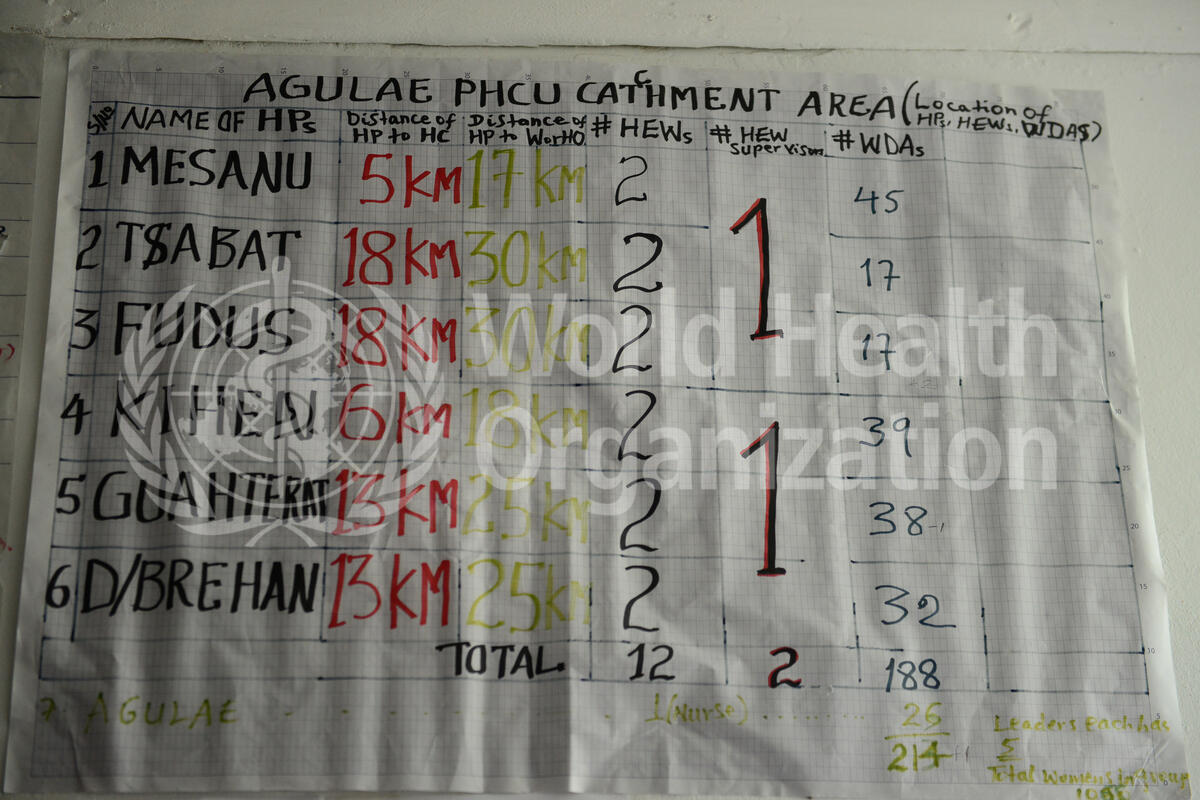 AGULAE PHCU CATCHMENT AREA (Location of HPs, HEWs, WDAs)
S/No NAME OF HPs Distance of HP to HC Distance of HP to WorHO # HEWs # HEW Supervisors # WDAs
1 MESANU 5KM 17KM 2 1 45
2 TSABAT 18KM 30KM 2 17
3 FUDUS 18KM 30KM 2 17
4 KIHEN 6KM 18KM 2 1 39
5 GUAHTERAT 13KM 25KM 2 38
6 D/BREHAN 13KM 25KM 2 32
TOTAL. 12 2 188
7. AGULAE 1(Nurse) 26
214
Leaders each has
5
Total Womens in group
World Health
Organization